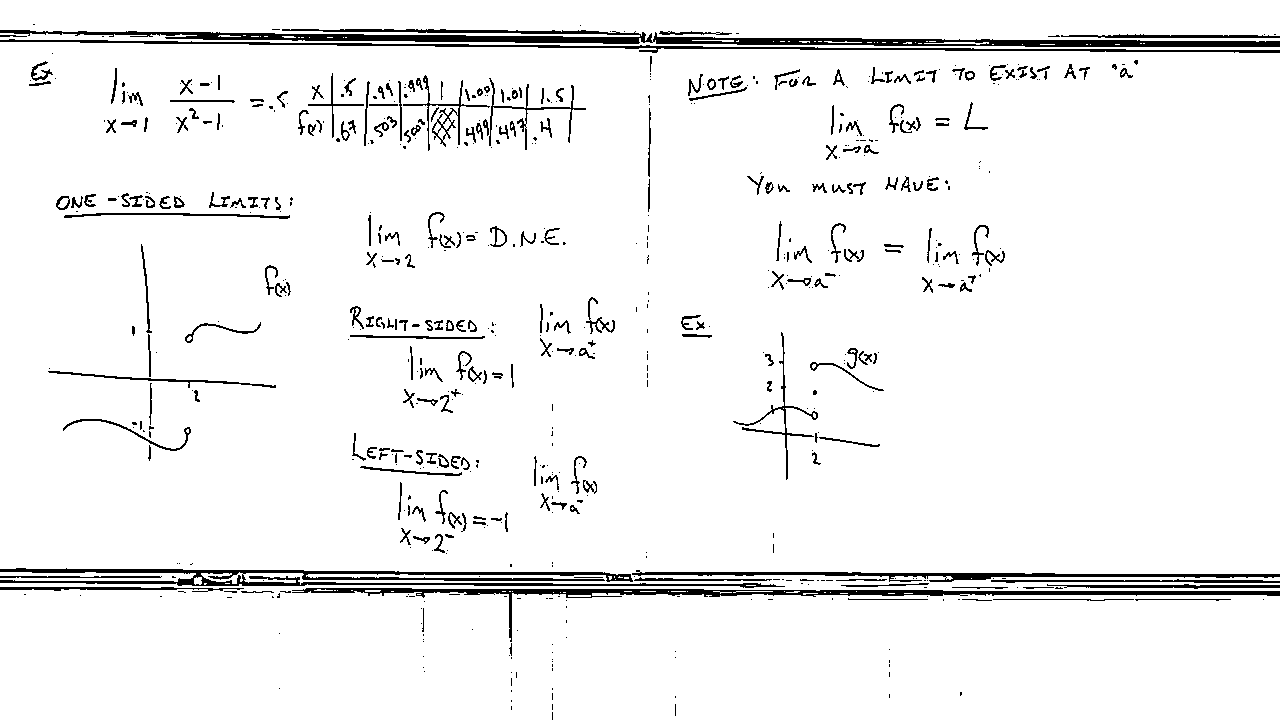 Ex
lim x→1 (x-1)/(x²-1) = .5
x | .5 | .99 | .999 | 1 | 1.001 | 1.01 | 1.5
f(x) | .67 | .503 | .5003 | | .499 | .497 | .4
ONE-SIDED LIMITS:
lim x→2 f(x) = D.N.E.
f(x)
1
2
-1
RIGHT-SIDED: lim x→a⁺ f(x)
lim x→2⁺ f(x) = 1
LEFT-SIDED: lim x→a⁻ f(x)
lim x→2⁻ f(x) = -1
NOTE: FOR A LIMIT TO EXIST AT "a"
lim x→a f(x) = L
YOU MUST HAVE:
lim x→a⁻ f(x) = lim x→a⁺ f(x)
Ex
g(x)
3
2
1
2